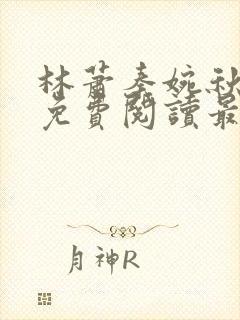 林蕭秦婉秋
免費閱讀最
月神R